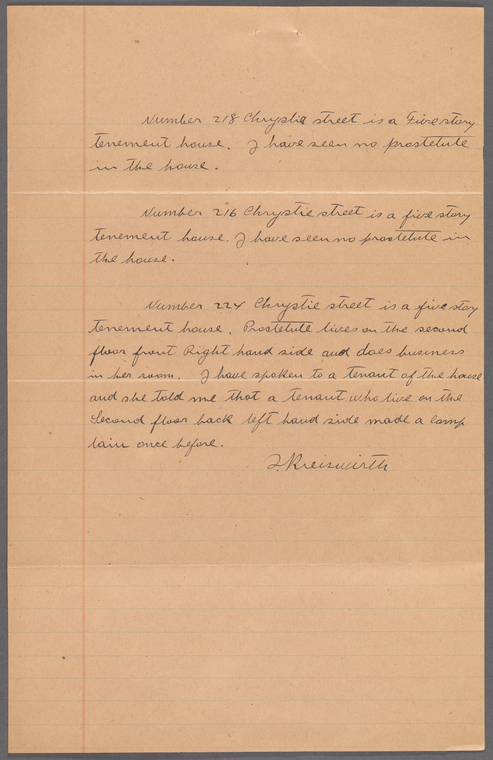 Number 218 Chrystie street is a Five story
tenement house. I have seen no prostetute
in the house.
Number 216 Chrystie street is a five story
tenement house. I have seen no prostetute in
the house.
Number 224 Chrystie street is a five story
tenement house. Prostetute lives on the second
floor front Right hand side and does business
in her room. I have spoken to a tenant of the house
and she told me that a tenant who live on the
Second floor back left hand side made a comp
lain once before.
J. Kreiswirth